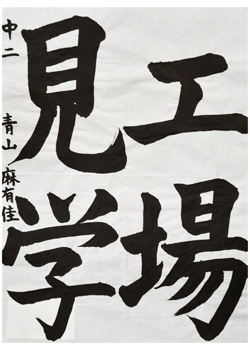 工場
見学
中二 青山麻有佳